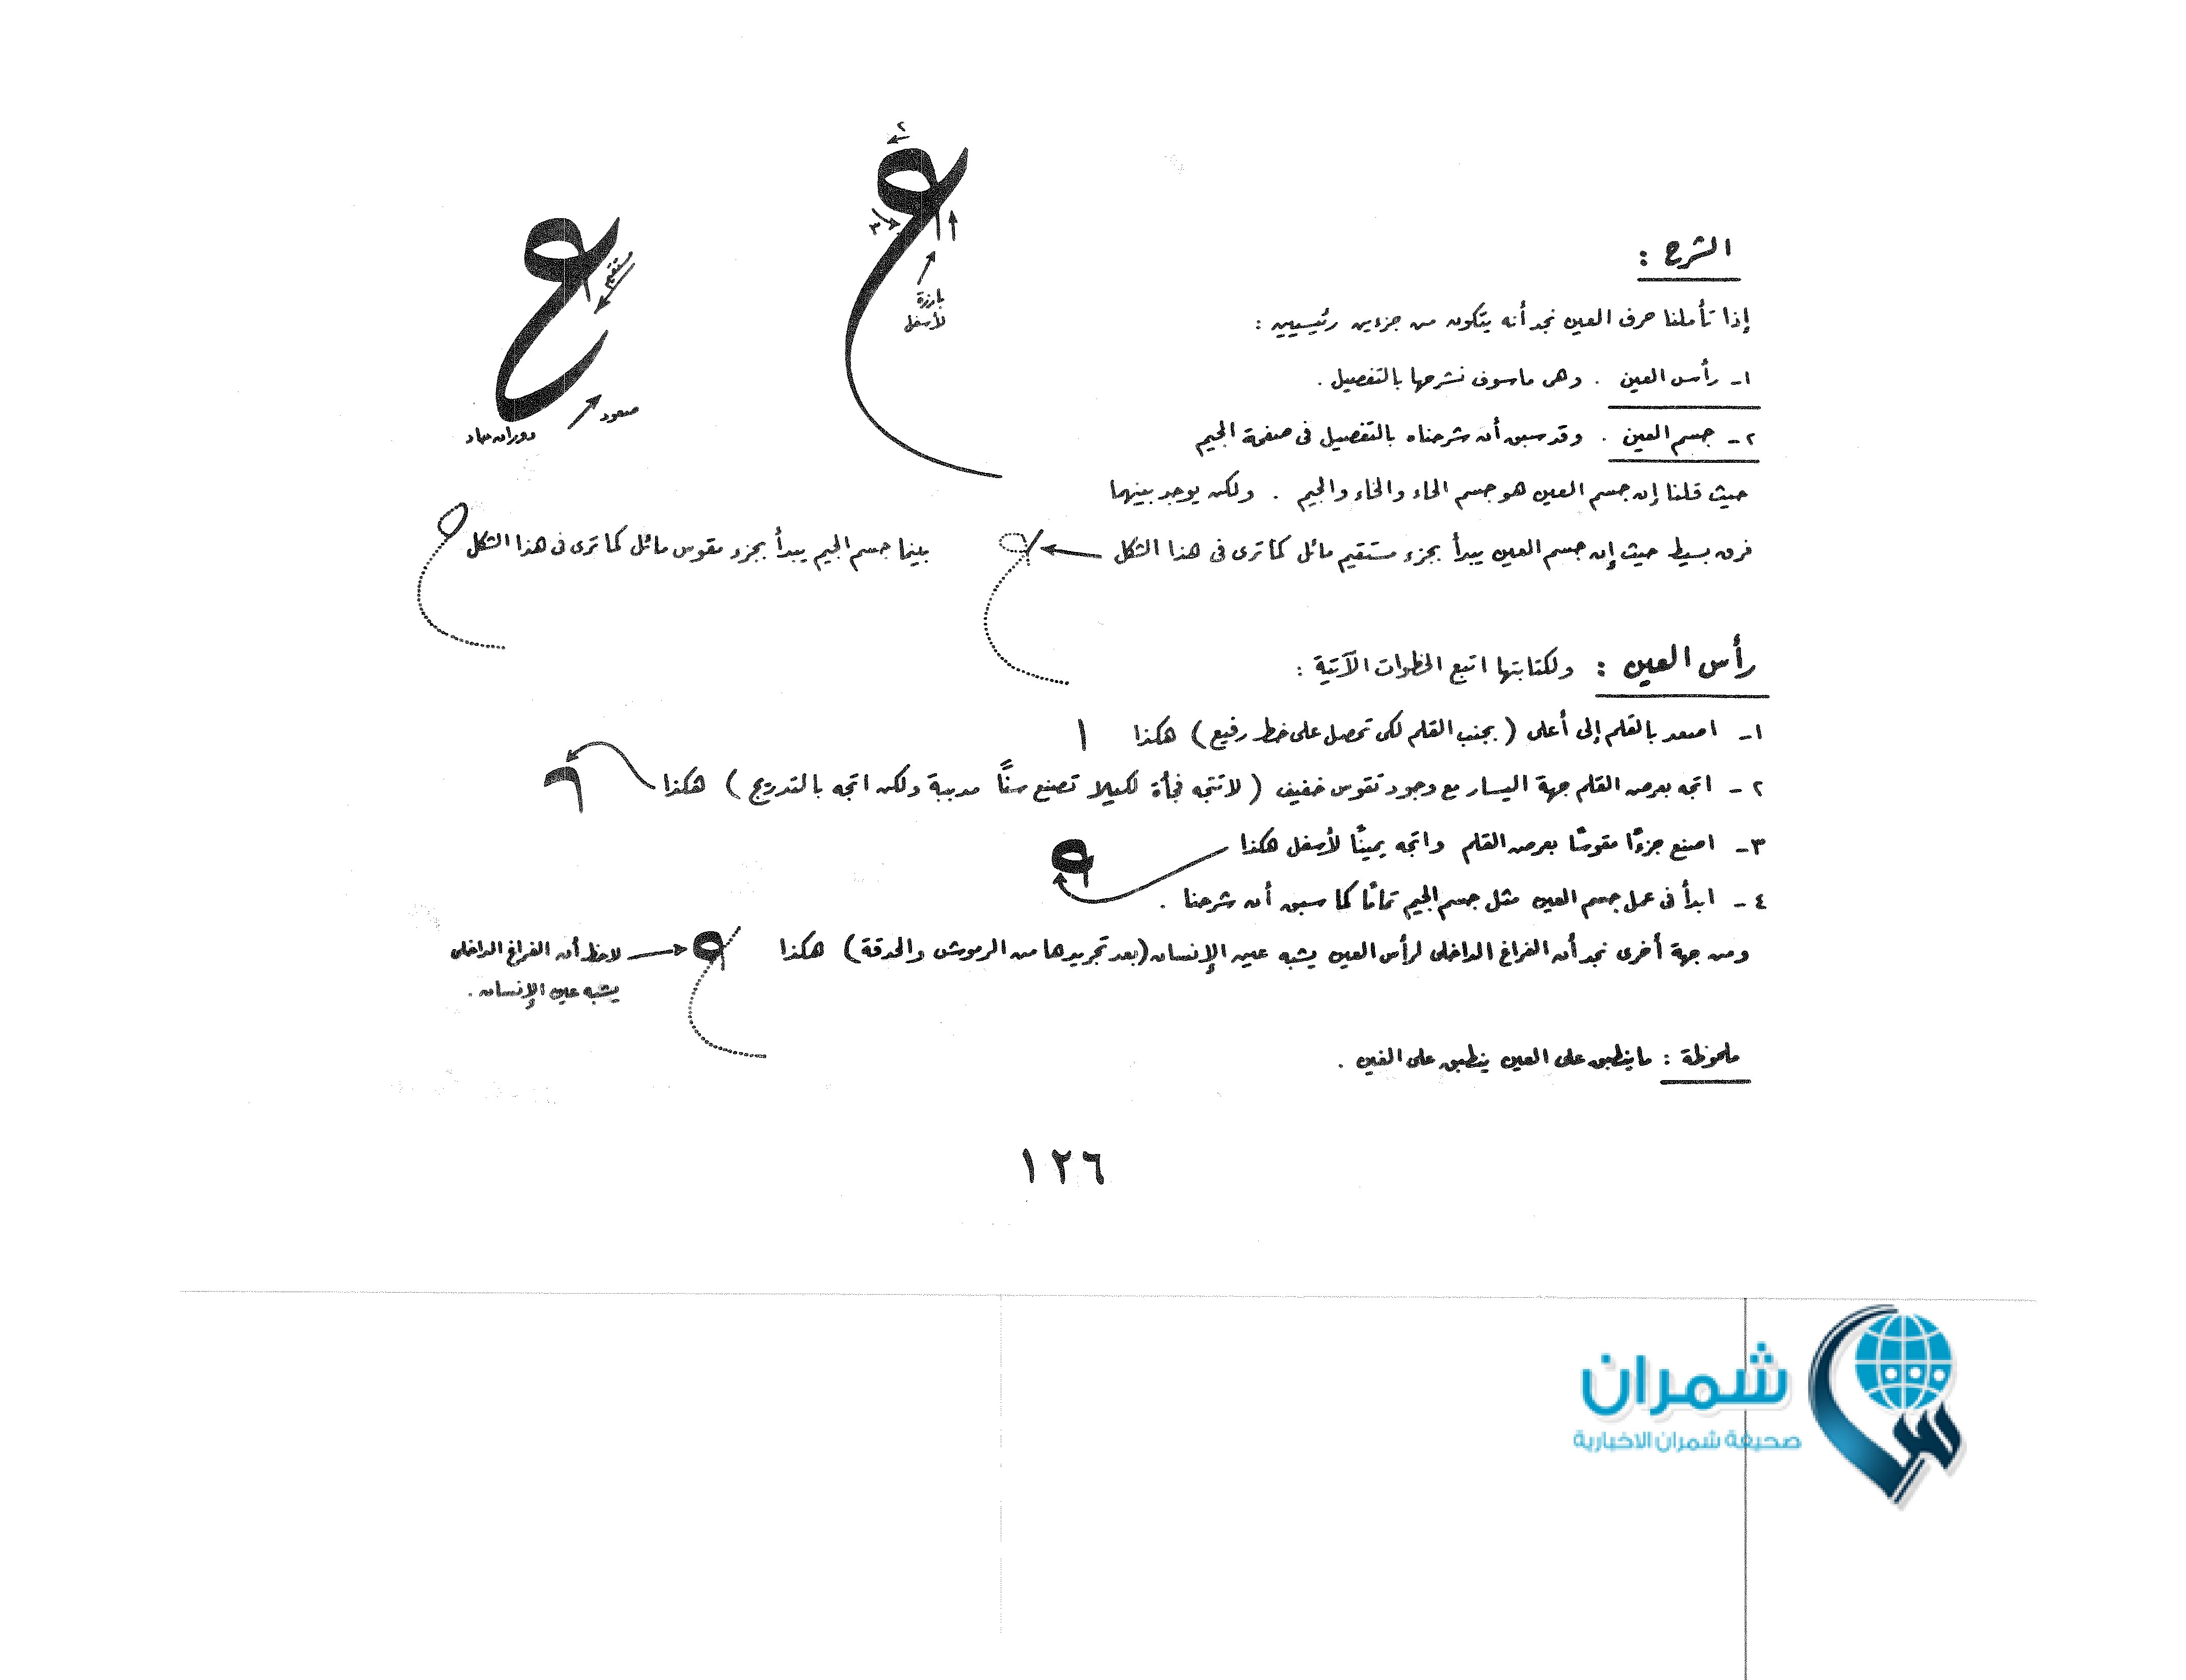 ٢
٣
بارزة
لأسفل
مستقيم
صعود
دوران حاد
الشرح :
إذا تأملنا حرف العين نجد أنه يتكون من جزءين رئيسيين :
١- رأس العين . وهى ماسوف نشرحها بالتفصيل .
٢- جسم العين . وقد سبق أن شرحناه بالتفصيل فى صفحة الجيم
حيث قلنا إن جسم العين هو جسم الحاء والخاء والجيم . ولكن يوجد بينهما
فرق بسيط حيث إن جسم العين يبدأ بجزء مستقيم مائل كما ترى فى هذا الشكل بينما جسم الجيم يبدأ بجزء مقوس مائل كما ترى فى هذا الشكل
رأس العين : ولكتابتها اتبع الخطوات الآتية :
١- اصعد بالقلم إلى أعلى (بجنب القلم لكى تحصل على خط رفيع) هكذا
٢- اتجه بعرض القلم جهة اليسار مع وجود تقوس خفيف (لا تتجه فجأة لكيلا تصنع سنًّا مدببة ولكن اتجه بالتدريج) هكذا
٣- اصنع جزءًا مقوسًا بعرض القلم واتجه يمينًا لأسفل هكذا
٤- ابدأ فى عمل جسم العين مثل جسم الجيم تمامًا كما سبق أن شرحنا .
ومن جهة أخرى نجد أن الفراغ الداخلى لرأس العين يشبه عين الإنسان (بعد تجريدها من الرموش والحدقة) هكذا
لاحظ أن الفراغ الداخلى
يشبه عين الإنسان .
ملحوظة : ماينطبق على العين ينطبق على الغين .
١٢٦
شمران
صحيفة شمران الاخبارية